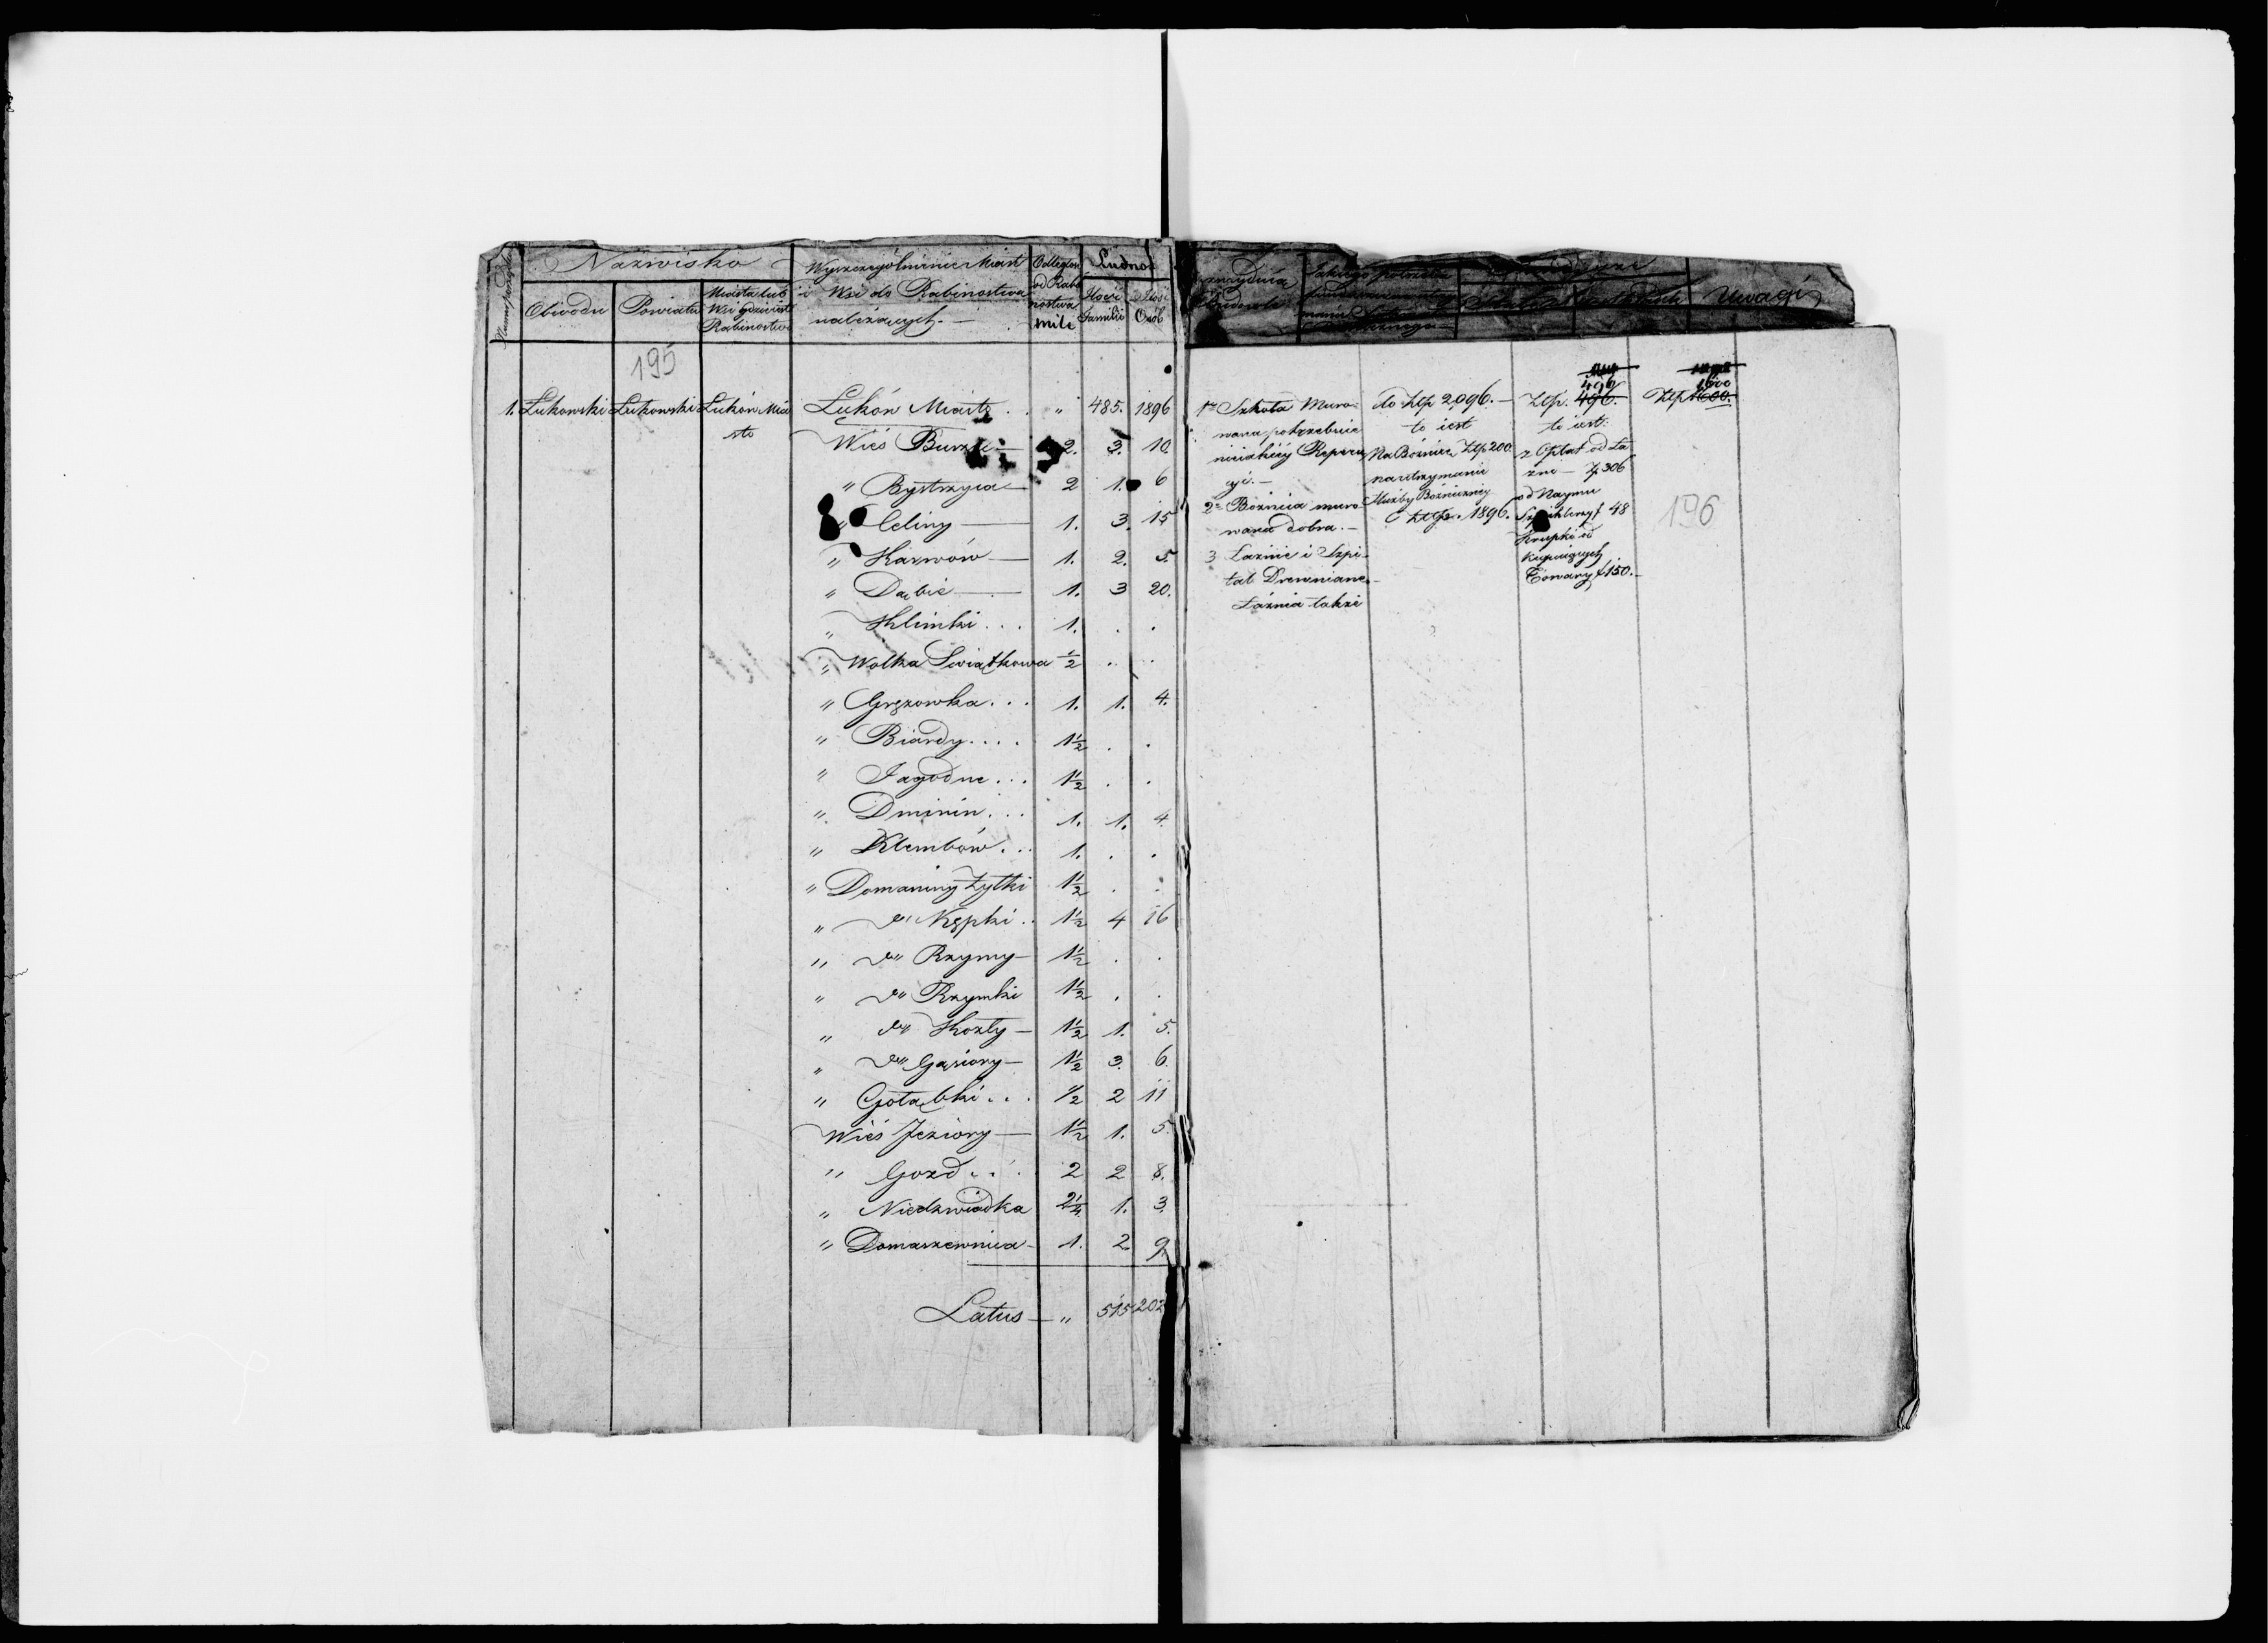 Nazwisko
Obwodu Powiatu Miasta lub Wsi gdzie iest Rabinostwo
Wyszczególnienie Miast i Wsi do Rabinostwa należących.—
Odległość od Rabinostwa mile
Ludnoś
Ilość Familii Ilość Osób
Uwagi
195
1. Łukowski Łukowski Łukow Mia Łuków Miasto . . " 485. 1896
sto
Wieś Burzec — 2. 3. 10.
" Bystrzyca — 2 1. 6
" Celiny — 1. 3. 15
" Karwów — 1. 2. 5.
" Dąbie — 1. 3 20.
" Klimki . . . 1. . .
" Wolka Swiątkowa ½ . .
" Gręzowka . . . 1. 1. 4.
" Biardy . . . . 1½ . .
" Jagodne . . . 1½ . .
" Dminin . . . 1. 1. 4.
" Klembów . . . 1. . .
" Domaniny Żytki 1½ . .
" do Kępki . . 1½ 4 16
" do Rzymy — 1½ . .
" do Rzymki 1½ . .
" do Kozły — 1½ 1. 5.
" do Gąsiory — 1½ 3. 6.
" Gołąbki . . . ½ 2 11
Wieś Jeziory — 1½ 1. 5
" Gozd . . . 2 2 8.
" Niedzwiadka 2¼ 1. 3.
" Domaszewnica — 1. 2. 9.
Latus — " 515 202
1o Szkoła Muro-
wana potrzebuie
nieiakiéy Repera
cyi.—
2o Bóżnica muro-
wana dobra.—
3 Łaźnie i Szpi-
tal Drewniane.—
Łaźnia także
do Złp 2,096.—
to iest
Na Bóżnice Złp 200.
na utrzymanie
Służby Bóżniczniey
Złp. 1896.
496
Złp. 496.
to iest:
z Opłat od Ła
zne — Zł 306
od Naymu
48
Skupki od
kupuiących
Towary f 150.—
1600
Złp 1600.
196